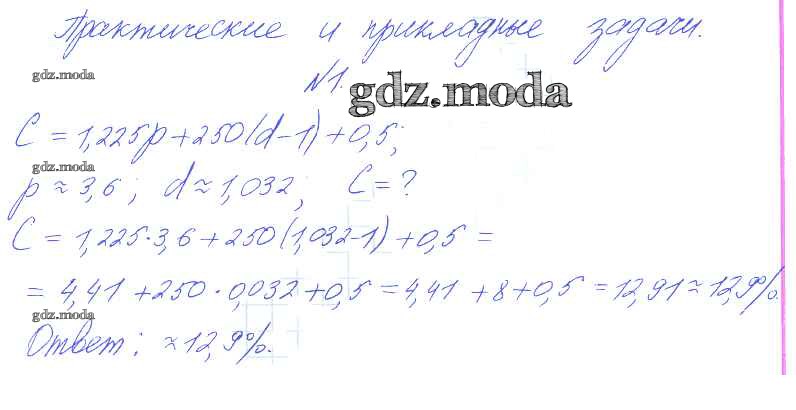 Практические и прикладные задачи.
gdz.moda
№1.
gdz.moda
C = 1,225p+250(d-1)+0,5;
gdz.moda
p ≈ 3,6; d ≈ 1,032; C = ?
C = 1,225·3,6+250(1,032-1)+0,5 =
= 4,41+250·0,032+0,5 = 4,41+8+0,5 = 12,91 ≈ 12,9%.
gdz.moda
Ответ: ≈ 12,9%.